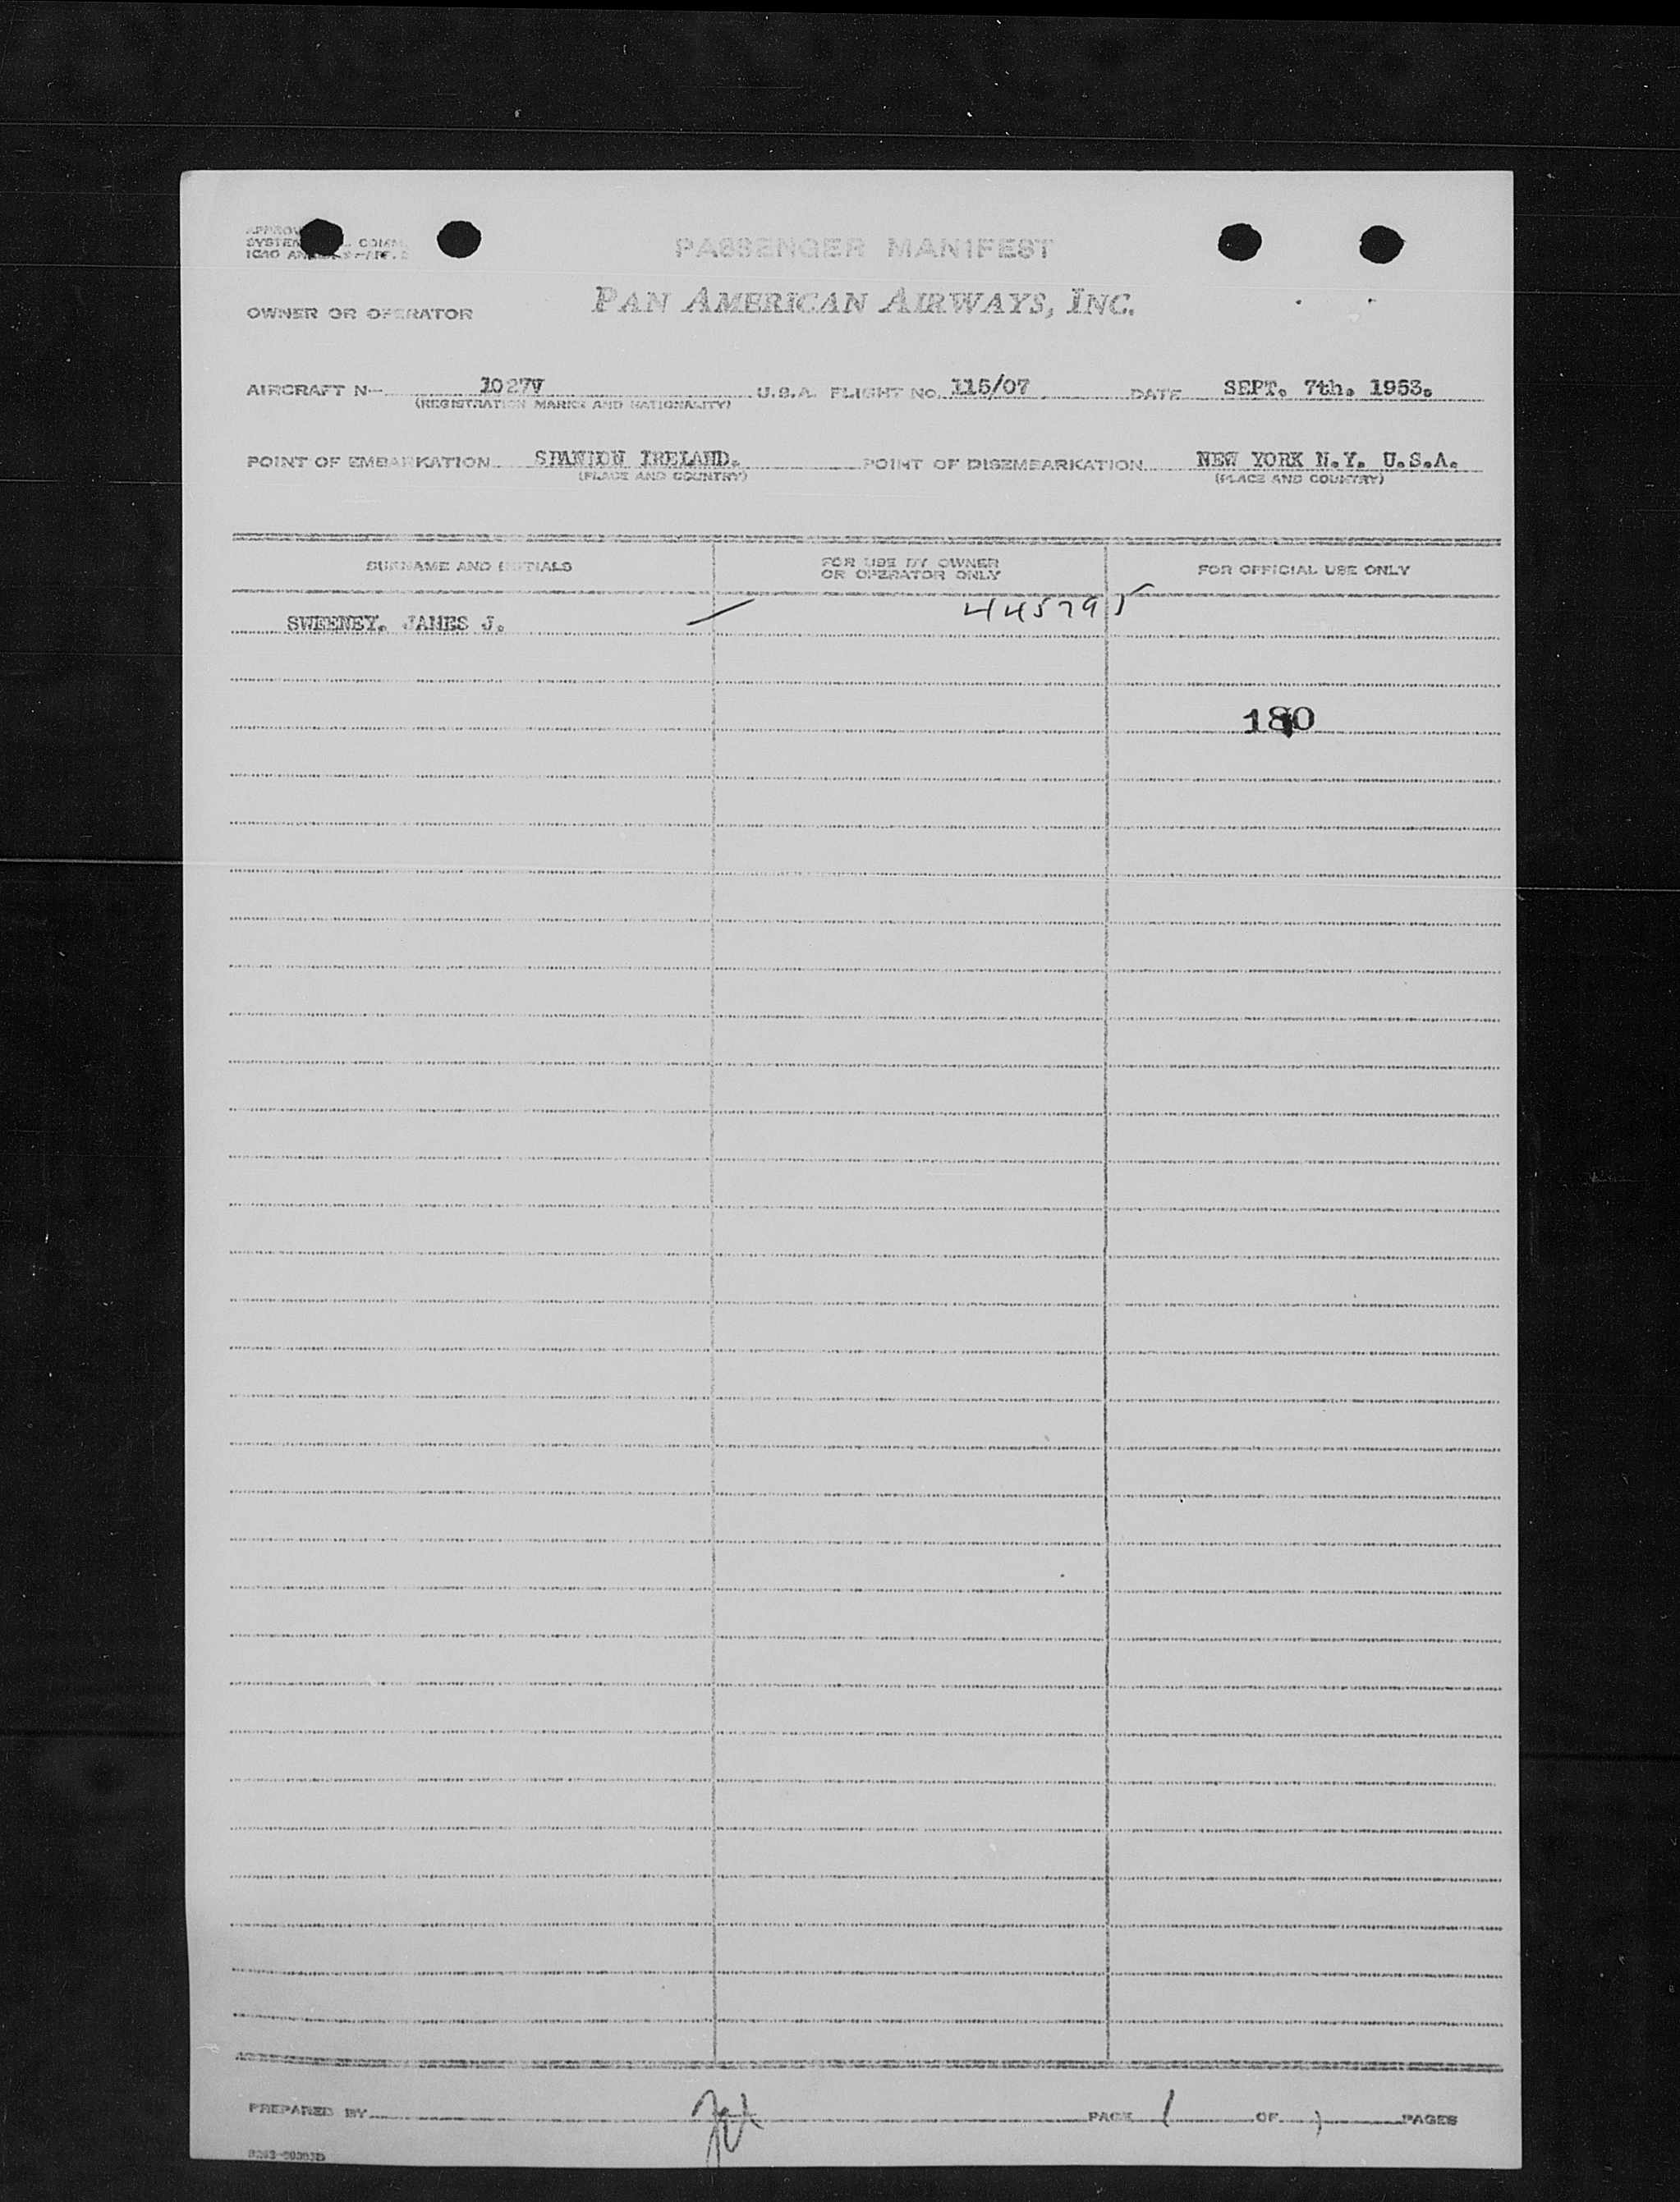 PASSENGER MANIFEST
OWNER OR OPERATOR PAN AMERICAN AIRWAYS, INC.
AIRCRAFT N- 1027V U.S.A. FLIGHT NO. 115/07 DATE SEPT. 7th. 1953.
(REGISTRATION MARKS AND NATIONALITY)
POINT OF EMBARKATION IRELAND. POINT OF DISEMBARKATION NEW YORK N.Y. U.S.A.
(PLACE AND COUNTRY) (PLACE AND COUNTRY)
SURNAME AND INITIALS FOR USE BY OWNER OR OPERATOR ONLY FOR OFFICIAL USE ONLY
SWEENEY. JAMES J. 445795
PREPARED BY PAGE 1 OF 1 PAGES